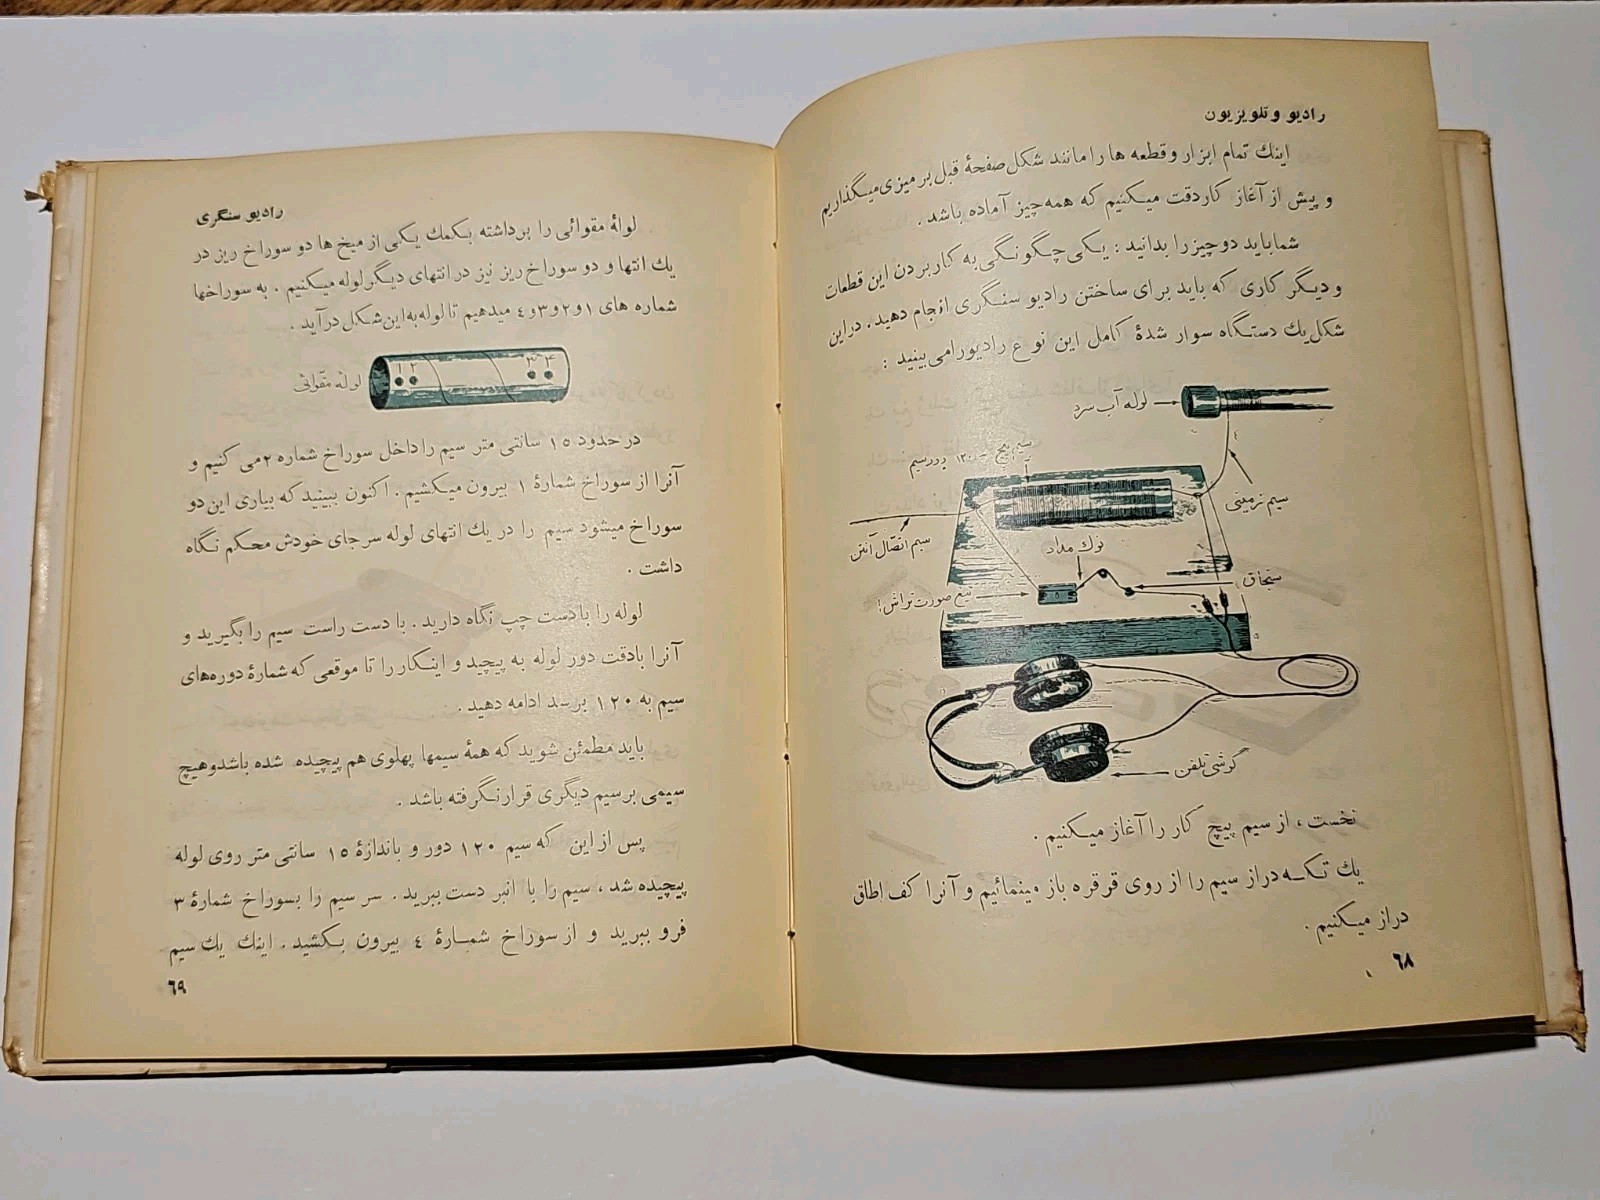 رادیو و تلویزیون
اینك تمام ابزار و قطعه ها را مانند شکل صفحهٔ قبل بر میزی میگذاریم
و پیش از آغاز کار دقت میکنیم که همه چیز آماده باشد .
شما باید دو چیز را بدانید : یکی چگونگی به کار بردن این قطعات
و دیگر کاری که باید برای ساختن رادیو سنگری انجام دهید . در این
شکل یك دستگاه سوار شدهٔ کامل این نوع رادیو را می بینید :
لوله آب سرد
سیم پیچ ۱۲۰ دور سیم
سیم زمینی
سیم اتصال آنتن
نوك مداد
سنجاق
تیغ صورت تراش!
گوشی تلفن
نخست ، از سیم پیچ کار را آغاز میکنیم .
یك تکه دراز سیم را از روی قرقره باز مینمائیم و آنرا کف اطاق
دراز میکنیم .
۶۸
رادیو سنگری
لولهٔ مقوائی را برداشته بکمك یکی از میخ ها دو سوراخ ریز در
یك انتها و دو سوراخ ریز نیز در انتهای دیگر لوله میکنیم . به سوراخها
شماره های ۱و۲و۳و٤ میدهیم تا لوله به این شکل در آید .
۱ ۲ ۳ ۴
لوله مقوائی
در حدود ۱۵ سانتی متر سیم را داخل سوراخ شماره ۲ می کنیم و
آنرا از سوراخ شمارهٔ ۱ بیرون میکشیم . اکنون ببینید که بیاری این دو
سوراخ میشود سیم را در یك انتهای لوله سر جای خودش محکم نگاه
داشت .
لوله را با دست چپ نگاه دارید . با دست راست سیم را بگیرید و
آنرا بادقت دور لوله به پیچید و اینکار را تا موقعی که شمارهٔ دوره‌های
سیم به ۱۲۰ برسد ادامه دهید .
باید مطمئن شوید که همهٔ سیمها پهلوی هم پیچیده شده باشد و هیچ
سیمی بر سیم دیگری قرار نگرفته باشد .
پس از این که سیم ۱۲۰ دور و باندازهٔ ۱۵ سانتی متر روی لوله
پیچیده شد ، سیم را با انبر دست ببرید . سر سیم را بسوراخ شمارهٔ ۳
فرو ببرید و از سوراخ شمارهٔ ٤ بیرون بکشید . اینك یك سیم
۶۹